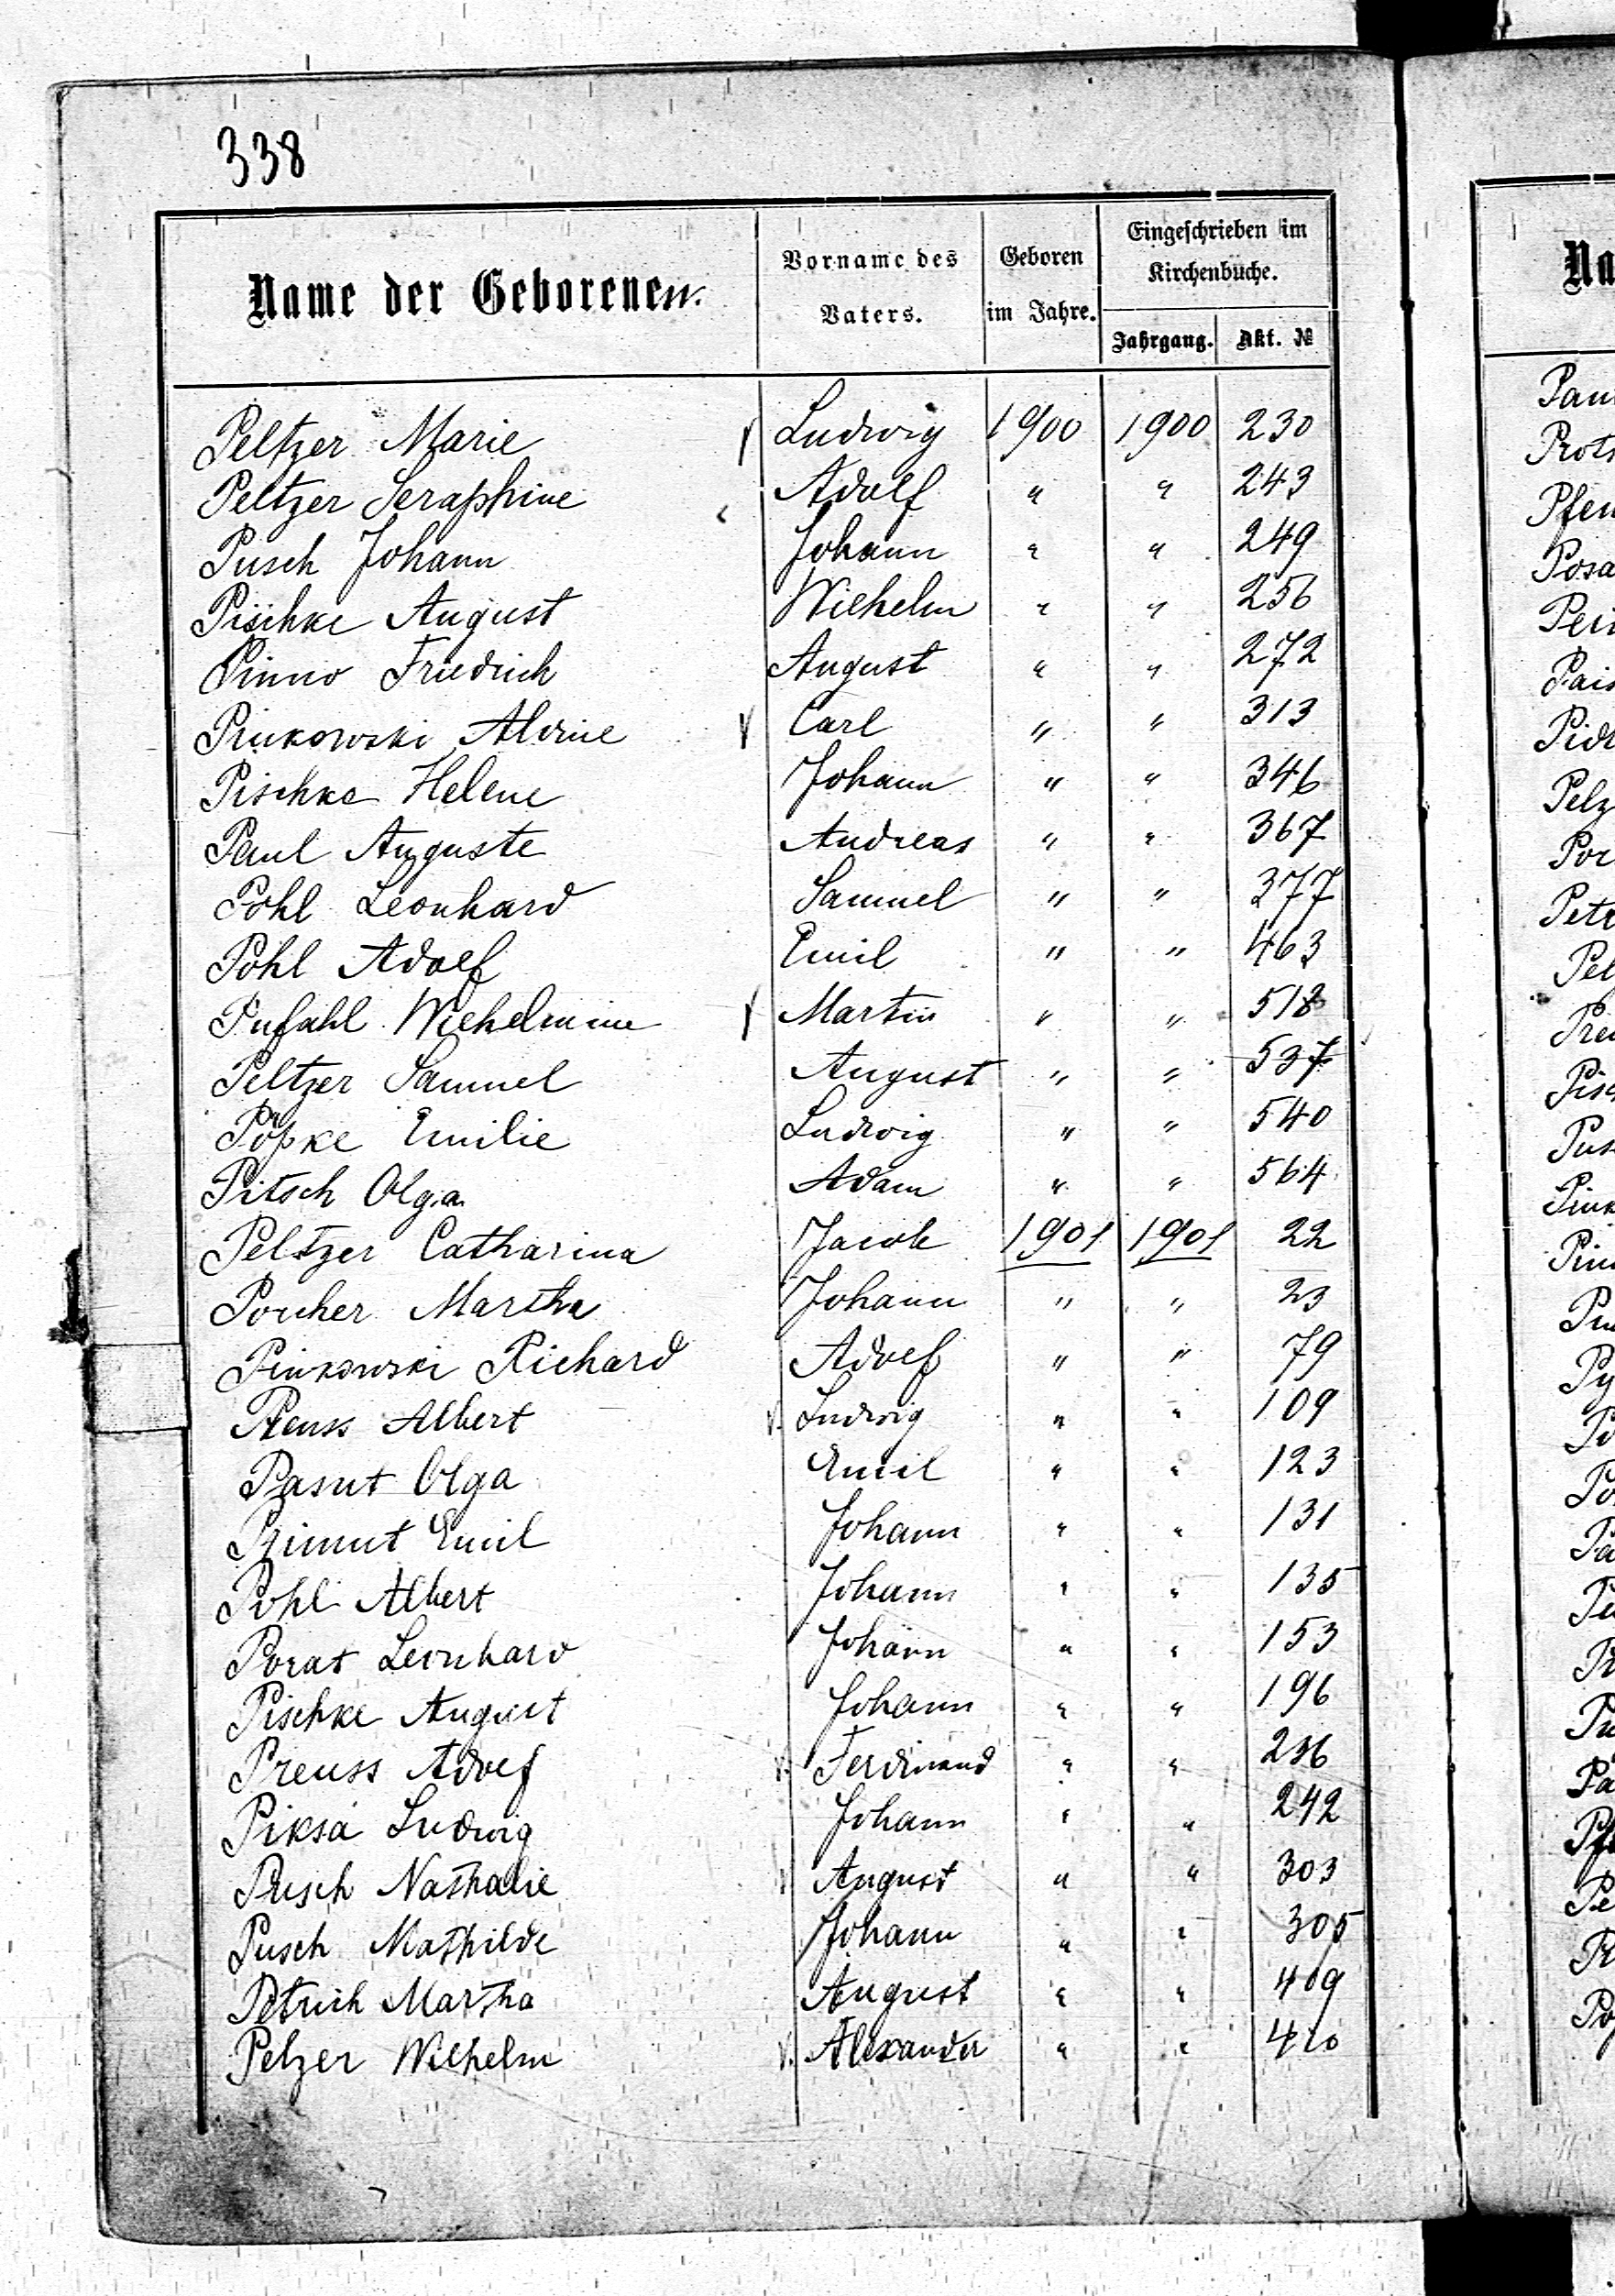 338
Name der Geborenen.
Vorname des Vaters.
Geboren im Jahre.
Eingeschrieben im Kirchenbuche.
Jahrgang. Akt. №
Peltzer Marie Ludwig 1900 1900 230
Peltzer Seraphine Adolf " " 243
Pusch Johann Johann " " 249
Pischke August Wilhelm " " 256
Pinno Friedrich August " " 272
Pinkowski Alvine Carl " " 313
Pischke Helene Johann " " 346
Paul Auguste Andreas " " 367
Pohl Leonhard Samuel " " 377
Pohl Adolf Emil " " 463
Pufahl Wilhelmine Martin " "
Peltzer Samuel August " " 537
Pöpke Emilie Ludwig " " 540
Pitsch Olga Adam " " 564
Peltzer Catharina Jacob 1901 1901 22
Martha Johann " " 23
Pinkowski Richard Adolf " " 79
Albert Ludwig " " 109
Pasut Olga Emil " " 123
Emil Johann " " 131
Pohl Albert Johann " " 135
Porat Leonhard Johann " " 153
Pischke August Johann " " 196
Preuss Adolf Ferdinand " " 236
Piksa Ludwig Johann " " 242
Pusch Nathalie August " " 303
Pusch Mathilde Johann " " 305
Petrich Martha August " " 409
Pelzer Wilhelm Alexander " " 410
Na
Pau
Prots
Pfen
Posa
Pais
Pelz
Por
Petr
Pel